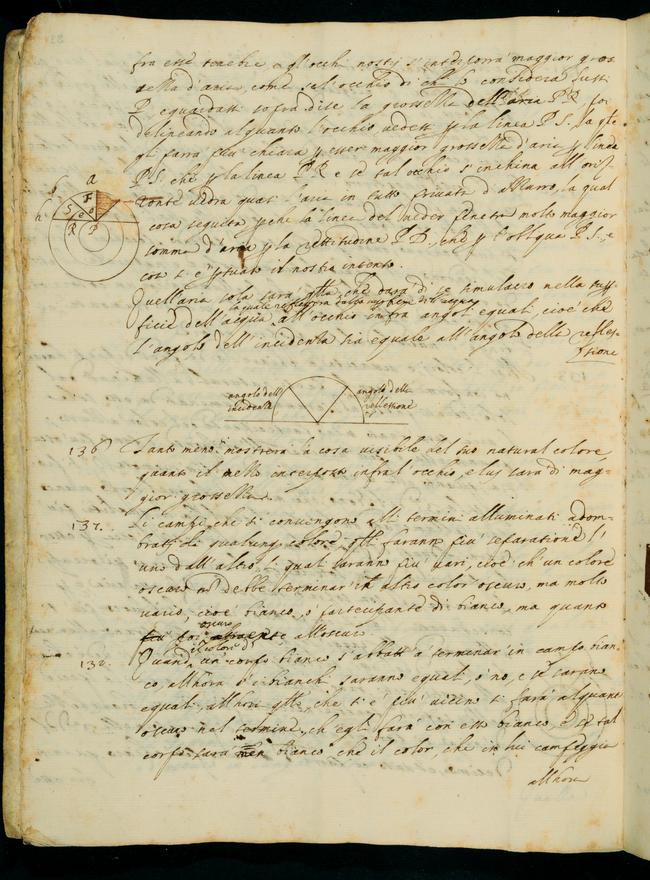 fra esse tenebre e gl'occhi nostri s'interporrà maggior gros
sezza d'aria, come se l'occhio di chi lo considera fusse
P equidista sopra di se la grossezza dell'aria P R poi
declinando alquanto l'occhio vedesse p la linea P S l'aria
gli parrà più chiara p esser maggior grossezza d'aria p linea
P S che p la linea P R e se tal occhio s'inchina all'oriz
zonte vedrà quasi l'aria in tutto privata d'azzurro, la qual
cosa seguita p che la linea del veder penetra molto maggior
somma d'aria p la rettitudine P D, che p l'obliqua P S, e
così si è persuaso il nostro intento.
Quell'aria sola sarà quella, che darà di se simulacro nella super
la quale rifletterà dalla superficie dell'acqua
ficie dell'acqua all'occhio infra angoli equali, cioè che
l'angolo dell'incidentia sia equale all'angolo della refles=
sione
a
b
h
F
S
R P
angolo dell'
incidentia
angolo della
reflessione
136 Tanto meno mostrerà la cosa visibile del suo natural colore,
quanto il mezzo interposto infra l'occhio, e lei sarà di mag=
gior grossezza.
137. Li campi, che si convengono alli termini alluminati, adom=
brati di qualunq, colore, quelli faranno più separatione l'
uno dall'altro, li quali saranno più vari, cioè ch'un colore
oscuro no' debbe terminar in altro color oscuro, ma molto
vario, cioè bianco, o partecipante di bianco, ma quanto
oscuro
più poi all'oscuro
il colore d'
138. Quando un corpo bianco s'abbatte a terminar in campo bian
co, allhora o i bianchi saranno equali, o no, e se saranno
equali, allhora quello, che ti è più vicino si farà alquanto
oscuro nel termine, ch'egli farà con esso bianco, e se tal
corpo sarà men bianco che il color, che in lui campeggia
allhora